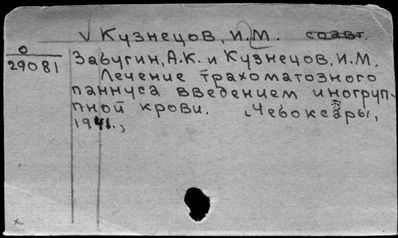 √ Кузнецов, И.М. соавт.
0
29081
Забугин, А.К. и Кузнецов, И.М.
Лечение трахоматозного
паннуса введением иногруп-
пной крови. Чебоксары,
1941.,